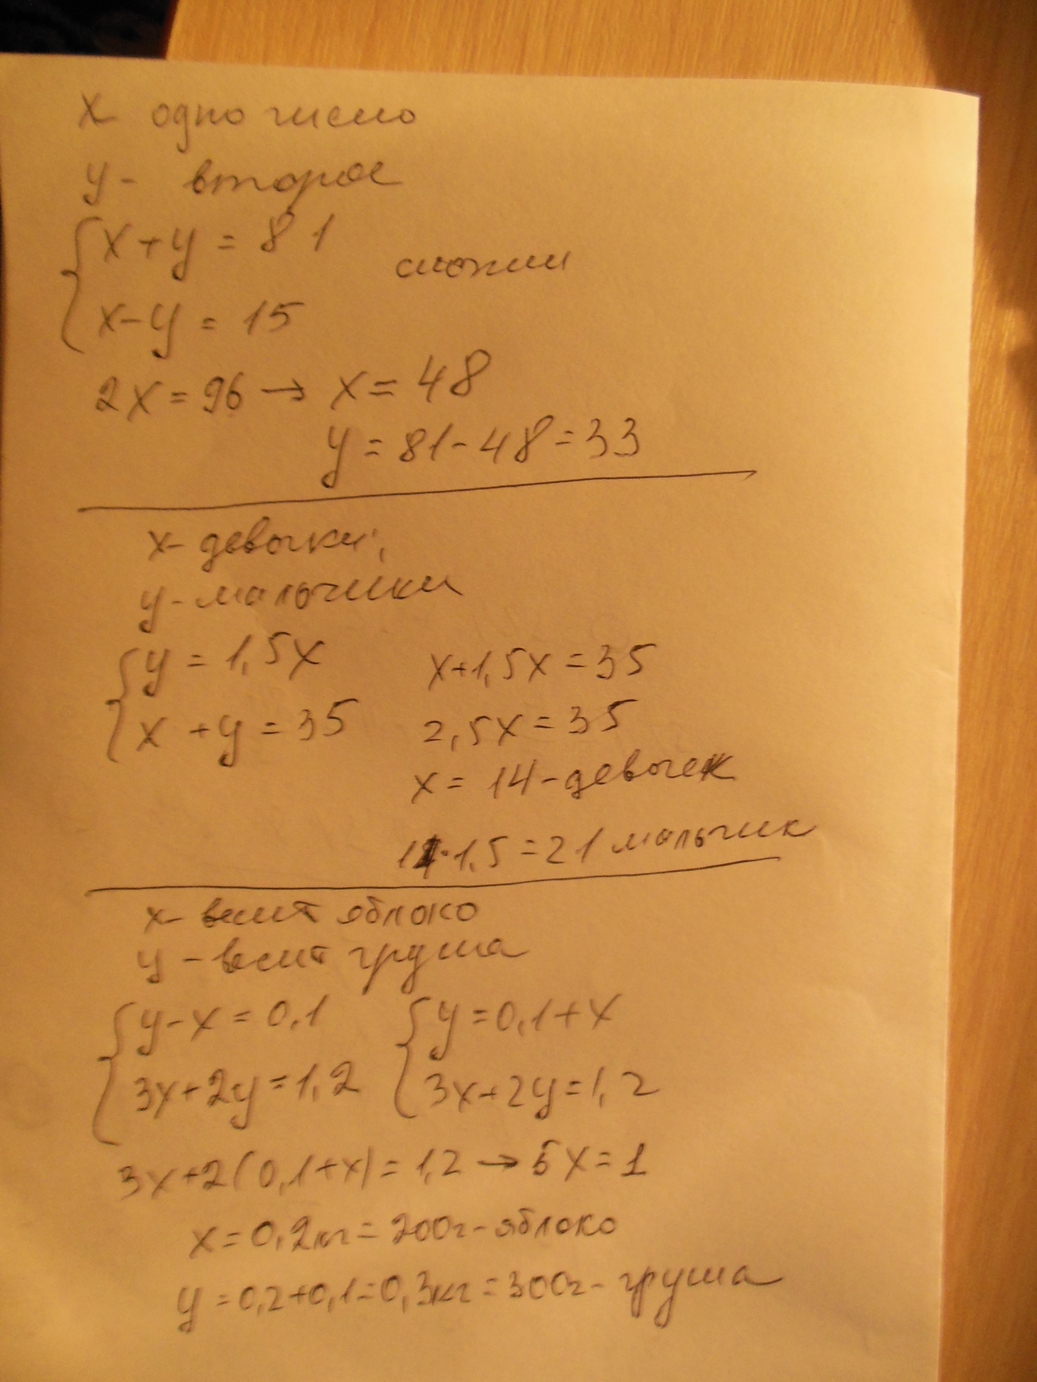 x- одно число
y- второе
x+y=81
сложим
x-y=15
2x=96→ x=48
y=81-48=33
x- девочки;
y-мальчики
y=1,5x
x+1,5x=35
x+y=35
2,5x=35
x=14-девочек
14·1,5=21 мальчик
x- весит яблоко
y-весит груша
y-x=0,1
y=0,1+x
3x+2y=1,2
3x+2y=1,2
3x+2(0,1+x)=1,2→5x=1
x=0,2кг=200г-яблоко
y=0,2+0,1=0,3кг=300г-груша